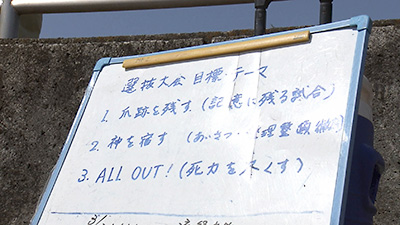 選抜大会 目標・テーマ
1. 爪跡を残す.(記憶に残る試合)
2. 神を宿す (あいさつ… 理整頓
3. ALL OUT! (死力を尽くす)
3/